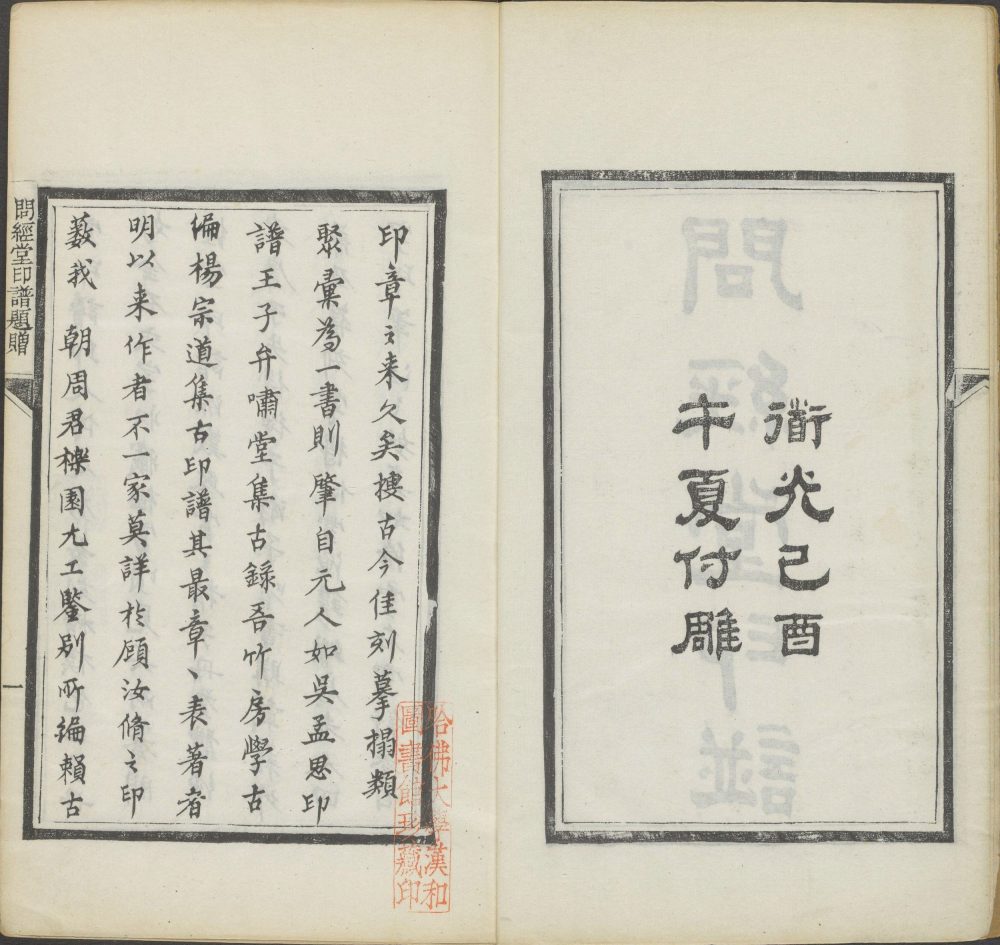 衜光己酉
午夏付雕
印章之来久矣搜古今佳刻摹搨類
聚彙為一書則肇自元人如吳孟思印
譜王子弁嘯堂集古錄吾竹房學古
編楊宗道集古印譜其最章〻表著者
明以来作者不一家莫詳於顧汝脩之印
藪我 朝周君櫟園尤工鑒别所編賴古
問經堂印譜題贈
一
哈佛大學漢和
圖書館珍藏印
問經堂印譜